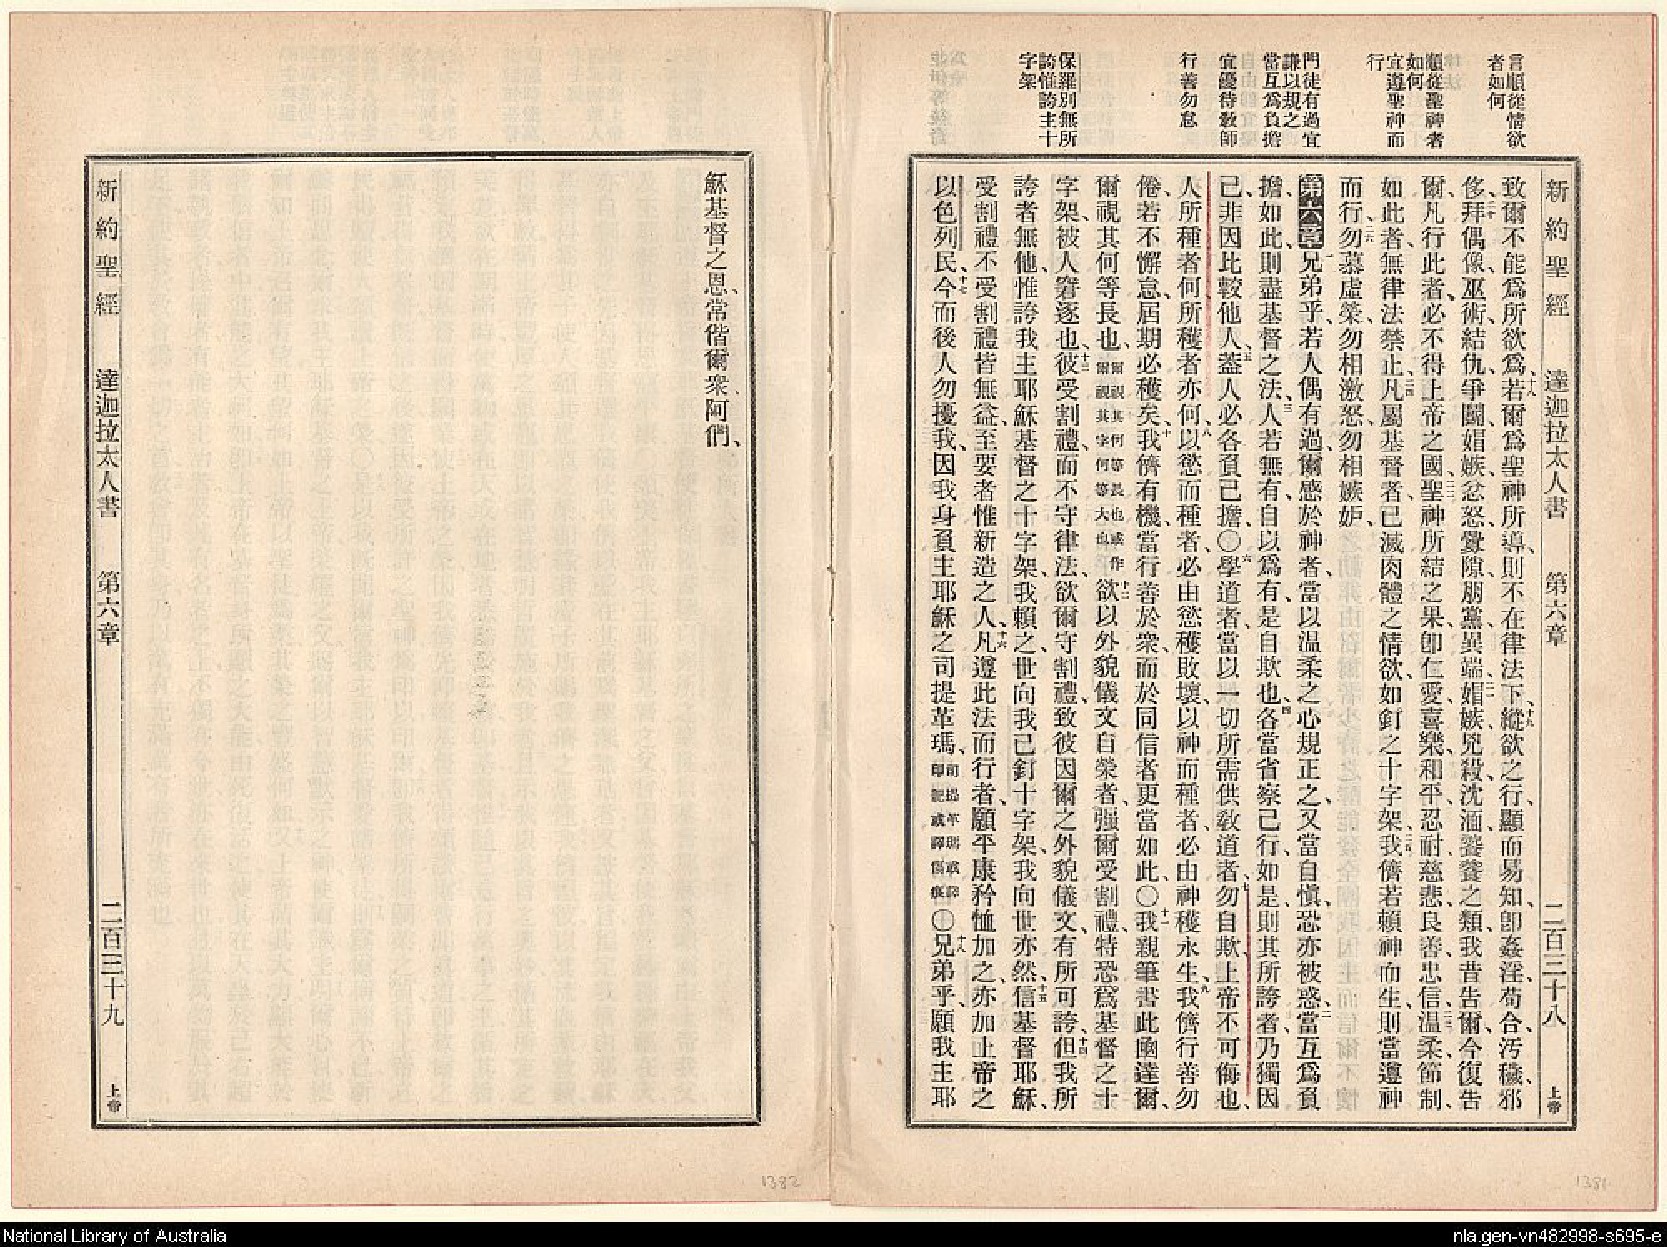 言順從情欲
者如何
順從聖神者
如何
宜遵聖神而
行
門徒有過宜
謙以規之
當互爲負擔
宜優待敎師
行善勿怠
保羅別無所
誇惟誇主十
字架
新約聖經 達迦拉太人書 第六章 二百三十八 上帝
致爾不能爲所欲爲、十八若爾爲聖神所導、則不在律法下、十九縱欲之行、顯而易知、卽姦淫、苟合、汚穢、邪
侈、二十拜偶像、巫術、結仇、爭鬭、媢嫉、忿怒、釁隙、朋黨、異端、二一媢嫉、兇殺、沈湎、饕餮之類、我昔吿爾、今復吿
爾、凡行此者、必不得上帝之國、二二聖神所結之果、卽仁愛、喜樂、和平、忍耐、慈悲、良善、忠信、二三溫柔、節制、
如此者、無律法禁止、二四凡屬基督者、已滅肉體之情欲、如釘之十字架、二五我儕若賴神而生、則當遵神
而行、二六勿慕虛榮、勿相激怒、勿相嫉妒、
第六章 一兄弟乎、若人偶有過、爾感於神者、當以温柔之心規正之、又當自愼、恐亦被惑、二當互爲負
擔、如此、則盡基督之法、三人若無有、自以爲有、是自欺也、四各當省察己行、如是、則其所誇者、乃獨因
己、非因比較他人、五蓋人必各負己擔、〇六學道者、當以一切所需供敎道者、七勿自欺、上帝不可侮也、
人所種者何、所穫者亦何、八以慾而種者、必由慾穫敗壞、以神而種者、必由神穫永生、九我儕行善勿
倦、若不懈怠、屆期必穫矣、十我儕有機、當行善於衆、而於同信者更當如此、〇十一我親筆書此函達爾、
爾視其何等長也、爾視其何等長也或作爾視其字何等大也十二欲以外貌儀文自榮者、强爾受割禮、特恐爲基督之十
字架、被人窘逐也、十三彼受割禮、而不守律法、欲爾守割禮、致彼因爾之外貌儀文、有所可誇、十四但我所
誇者無他、惟誇我主耶穌基督之十字架、我賴之世向我已釘十字架、我向世亦然、十五信基督耶穌、
受割禮不受割禮皆無益、至要者惟新造之人、十六凡遵此法而行者、願平康矜恤加之、亦加上帝之
以色列民、十七今而後人勿擾我、因我身負主耶穌之司提革瑪、司提革瑪或譯印記或譯傷痕〇十八兄弟乎、願我主耶
穌基督之恩、常偕爾衆、阿們、
新約聖經 達迦拉太人書 第六章 二百三十九 上帝
1382
1381
National Library of Australia
nla.gen-vn482998-s695-e